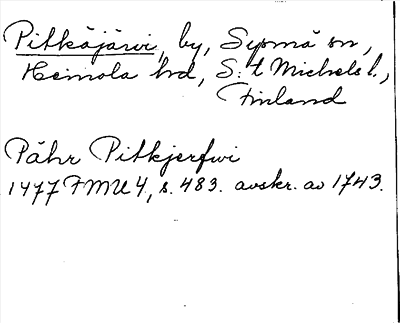 Pitkäjärvi, by, Sysmä sn,
Heinola hd, S:t Michels l.,
Finland
Påhr Pitkjerfwi
1477 FMU 4, s. 483. avskr. av 1743.